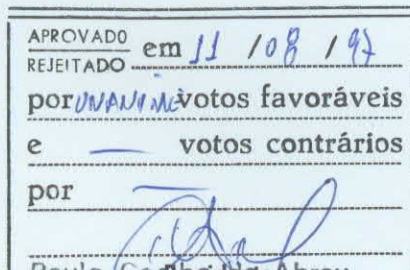 APROVADO
REJEITADO em 11 / 08 / 97
por UNANIME votos favoráveis
e — votos contrários
por —
Abreu